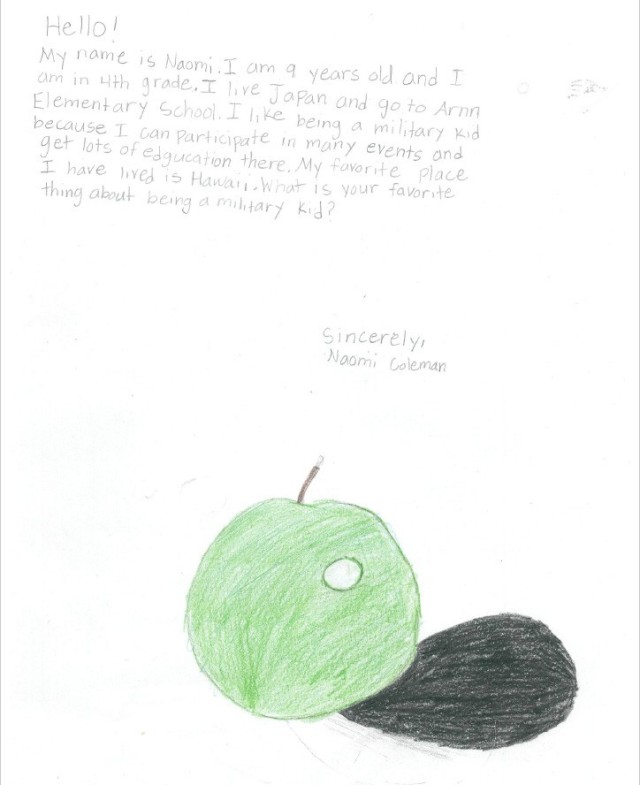 Hello!
My name is Naomi. I am 9 years old and I
am in 4th grade. I live Japan and go to Arnn
Elementary School. I like being a military kid
because I can participate in many events and
get lots of edgucation there. My favorite place
I have lived is Hawaii. What is your favorite
thing about being a military kid?
Sincerely,
Naomi Coleman